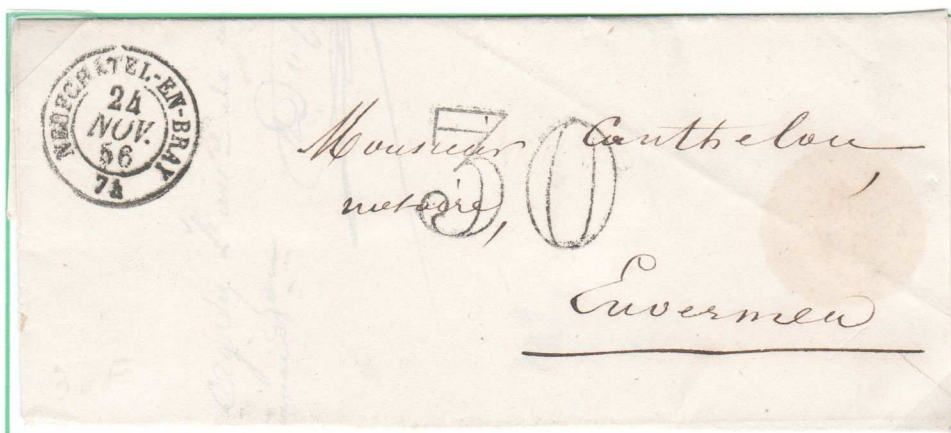 NEUFCHATEL-EN-BRAY
24
NOV.
56
74
30
Monsieur Canthelou,
notaire,
Envermeu